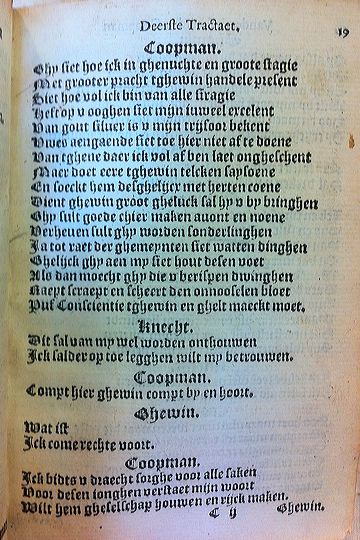 Deerste Tractaet.
19
Coopman.
Ghy siet hoe ick in ghenuchte en groote stagie
Met grooter pracht tghewin handele present
Siet hoe vol ick bin van alle firagie
Heft op v ooghen siet mijn iuweel excelent
Van gout siluer is v mijn trijsoor bekent
Vwes aengaende siet toe hier niet af te doene
Van tghene daer ick vol af ben laet ongheschent
Maer doet eere tghewin telcken saysoene
En soeckt hem desghelijcx met herten coene
Dient ghewin groot gheluck sal hy v by bringhen
Ghy sult goede chier maken auont en noene
Verheuen sult ghy worden sonderlinghen
Ja tot raet der ghemeynten siet watten dinghen
Ghelijck ghy aen my siet hout desen voet
Alo dan moecht ghy die v berispen dwinghen
Raept scraept en scheert den onnooselen bloet
Puf Conscientie tghewin en ghelt maeckt moet.
Knecht.
Dit sal van my wel worden onthouwen
Ick salder op toe legghen wilt my betrouwen.
Coopman.
Compt hier ghewin compt by en hoort.
Ghewin.
Wat ist
Ick come rechte voort.
Coopman.
Ick bidts v draecht sorghe voor alle saken
Voor desen ionghen verstaet mijn woort
Wilt hem gheselschap houwen en rijck maken.
C ij Ghewin.